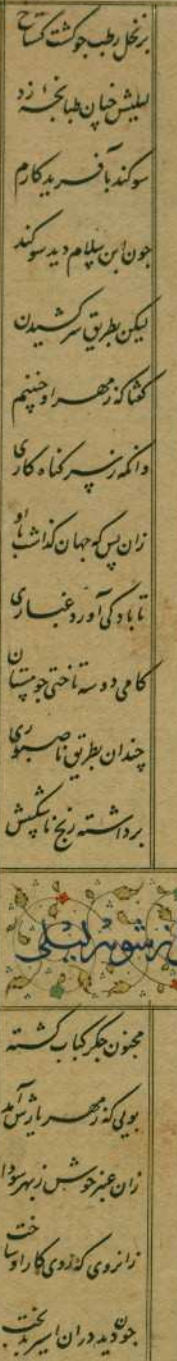 بر نخل رطب جو گشت گستاخ
لیلیش چنان طبانچه زد
سوکند بآفریدکارم
جون ابن سلام دید سوکند
لیکن بطریق سر کشیدن
گفتا که ز مهر او چنینم
وانکه ز سر کناه کاری
زان پس که جهان گذاشت با او
تا باد کی آورد غباری
کامی دو سه تاختی جو مستان
چندان بطریق ناصبوری
برداشته رنج ناشکیبش
شوهر لیلی
مجنون جگر کباب گشته
بویی که ز مهر یارش آمد
زان عنبر خوش ز بهر سودا
زانروی که روی کار او ساخت
جون دید در ان اسیر بد بخت